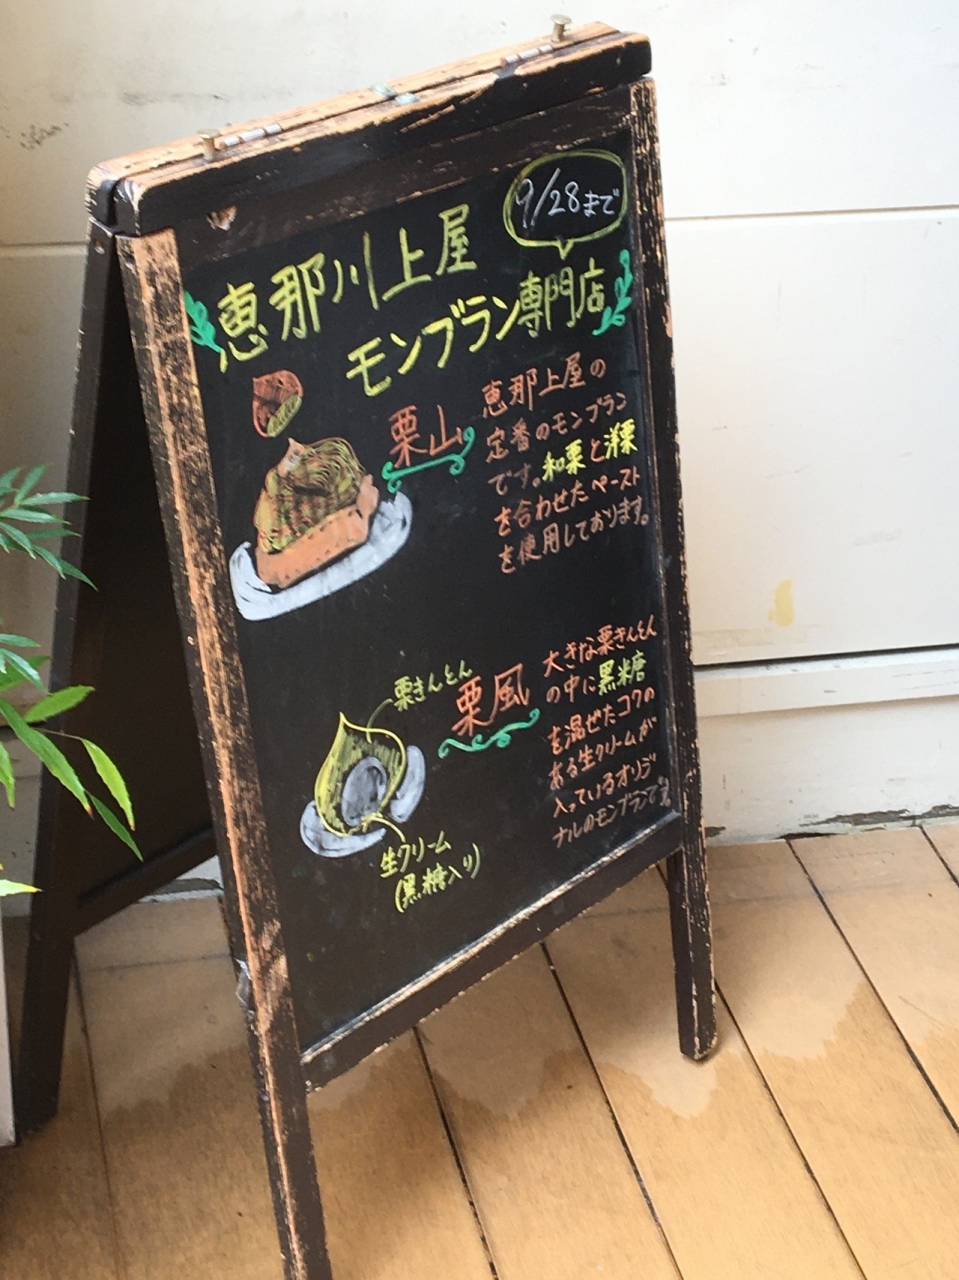 9/28まで
恵那川上屋
モンブラン専門店
栗山
恵那上屋の
定番のモンブラン
です。和栗と洋栗
を合わせたペースト
を使用しております。
栗きんとん
栗風
大きな栗きんとん
の中に黒糖
を混ぜたコクの
ある生クリームが
入っているオリジ
ナルのモンブランです。
生クリーム
(黒糖入り)